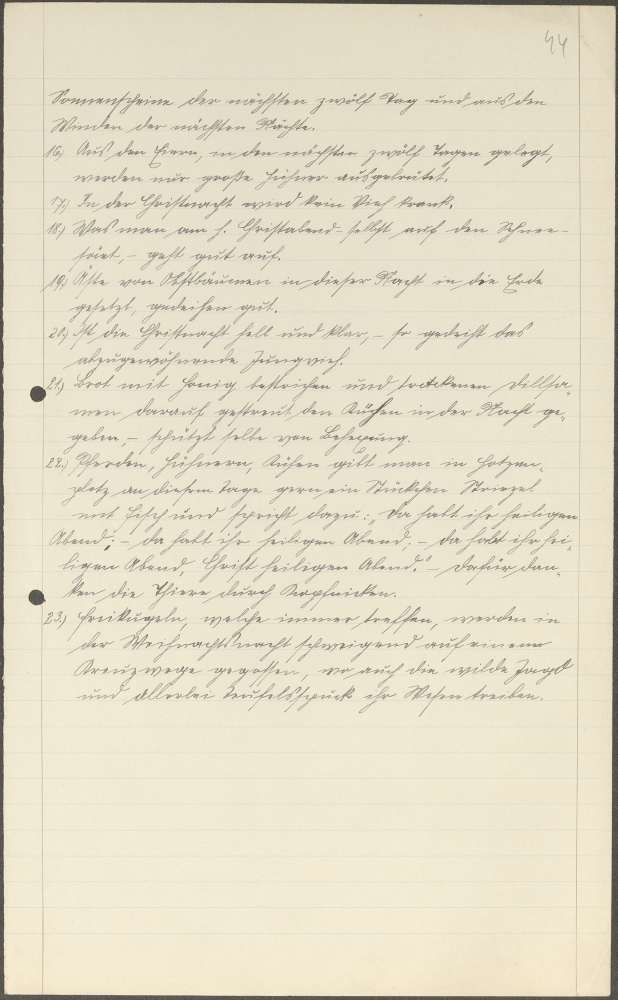 44
Sonnenscheine der nächsten zwölf Tag und aus den
Winden der nächsten Nächte.
16.) Aus den Eiern, in den nächsten zwölf Tagen gelegt,
werden nur große Hühner ausgebrütet.
17.) In der Christnacht wird kein Vieh krank.
18.) Was man am h. Christabend-selbst auf den Schnee-
säet, - geht gut auf.
19.) Äste von Obstbäumen in dieser Nacht in die Erde
gesetzt, gedeihen gut.
20.) Ist die Christnacht hell und klar, - so gedeiht das
abzugewöhnende Jungvieh.
21.) Brot mit Honig bestrichen und trockenen Dillsa-
men darauf gestreut den Kühen in der Nacht ge-
geben, - schützt selbe von Behexung.
22.) Pferden, Hühnern, Kühen gibt man in Hotzen-
plotz an diesem Tage gern ein Stückchen Striezel
mit Fisch und spricht dazu: „Da habt ihr heiligen
Abend; - da habt ihr heiligen Abend; - da habt ihr hei-
ligen Abend, Christ heiligen Abend." - Dafür dan-
ken die Thiere durch Kopfnicken.
23.) Freikugeln, welche immer treffen, werden in
der Weihnachtsnacht schweigend auf einem
Kreuzwege gegossen, wo auch die wilde Jagd
und allerlei Teufelsspuck ihr Wesen treiben.